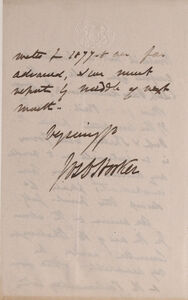 water for 1877 & are far
advanced, & we must
report by middle of next
month.
Very sincy
Jos D Hooker